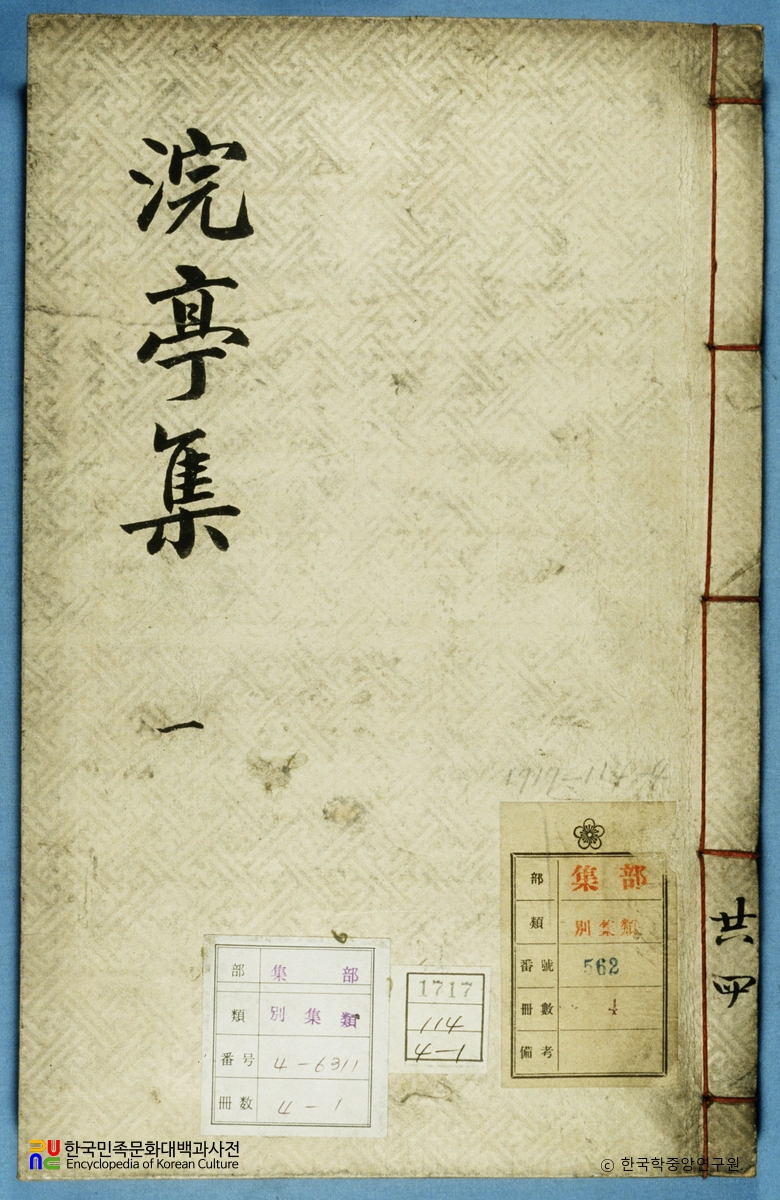 浣亭集
一
共四
部 集部
類 別集類
番號 562
冊數 4
備考
1717
114
4-1
部 集部
類 別集類
番号 4-6311
冊数 4-1
한국민족문화대백과사전
Encyclopedia of Korean Culture
© 한국학중앙연구원